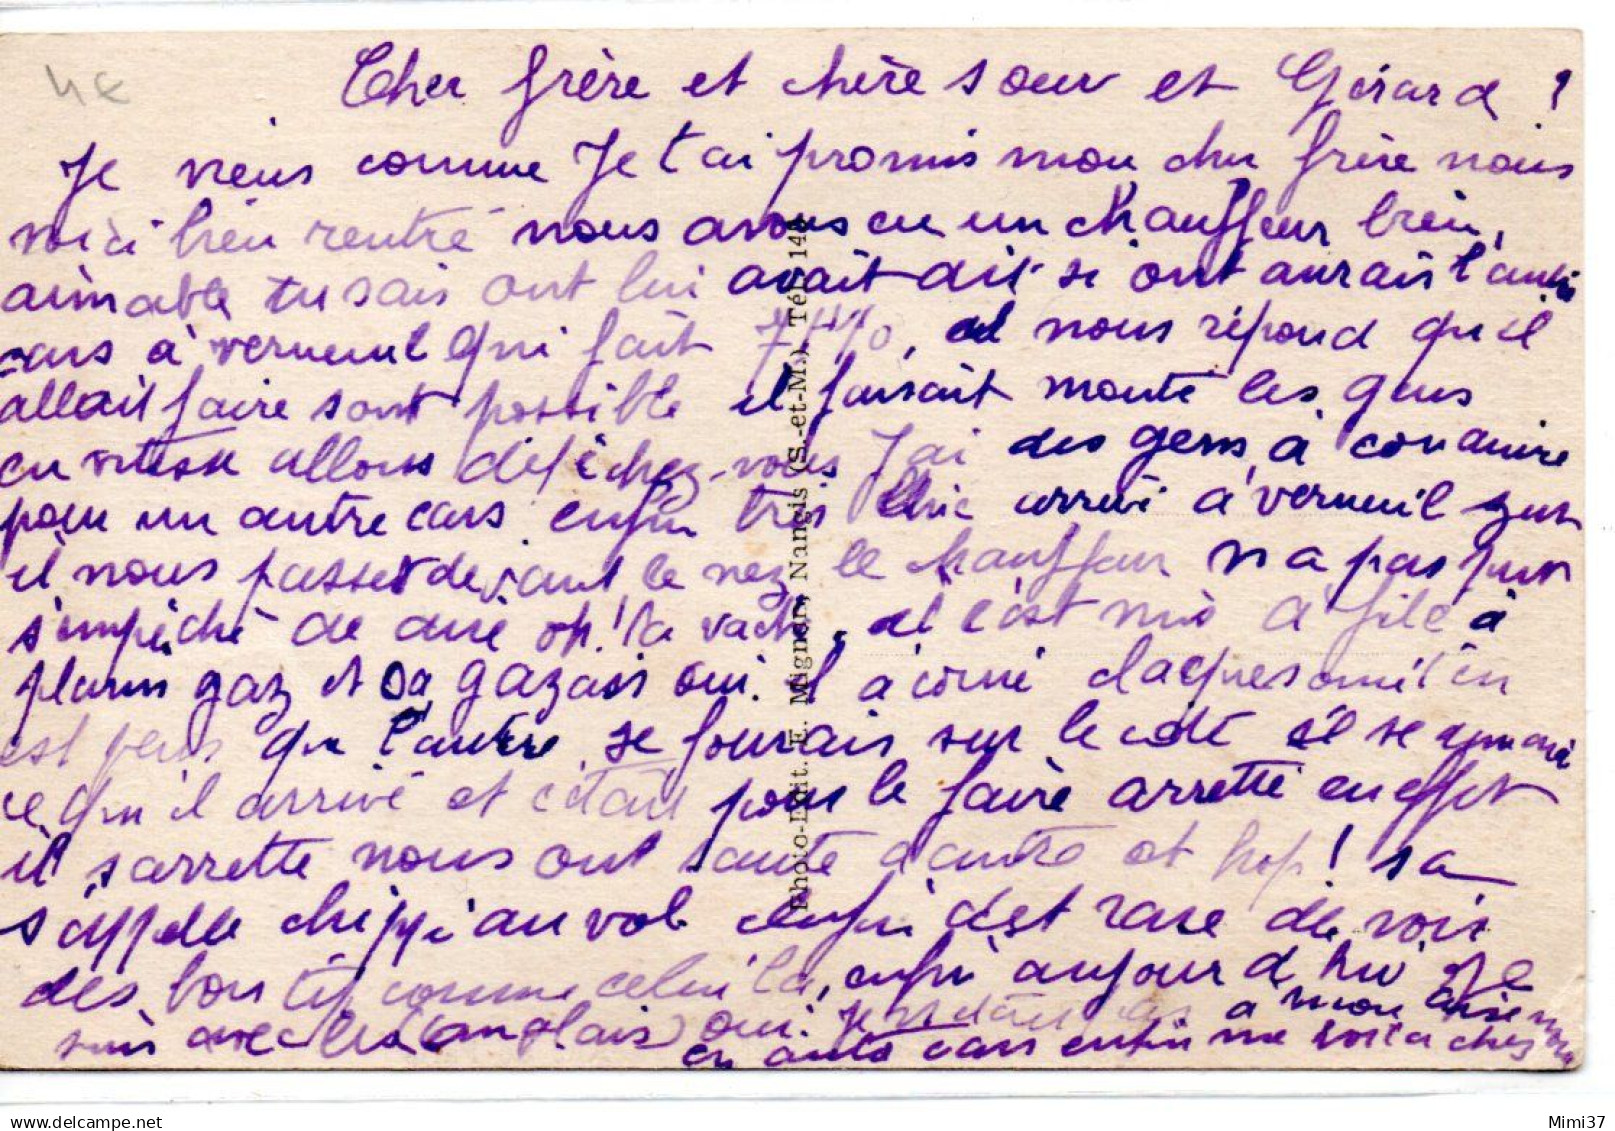 4€
Cher frère et chère soeur et Gérard !
Je viens comme Je t'ai promis mon cher frère nous
voici bien rentré nous avons eu un chauffeur bien
aimable tu sais ont lui avait dit si ont aurais l'autre
cars à verneuil qui fait 7H40, il nous répond qu'il
allait faire sont possible il faisait monté les gens
en vitesse allons dépéchez-vous J'ai des gens à conduire
pour un autre cars enfin très chic arrivé a verneuil
il nous passer devant le nez le chauffeur n'a pas put
s'empéché de dire oh! la vache, il c'est mis a filé à
plains gaz et sa gazais oui. il a corné claquesonné en
est peus que l'autre se fourais sur le coté il se
ce qu'il arrivé et c'était pour le faire arretté en effet
il s'arrette nous ont saute d'autre et hop! sa
s'appelle chippé au vol enfin c'est rare de voir
des bon tip comme celui la, enfin aujourd'hui Je
suis avec les (anglais) oui. a mon aise
en auto cars enfin me voila chez
Photo-Edit. E. Mignon, Nangis (S.-et-M.). Tél. 144
Mimi37